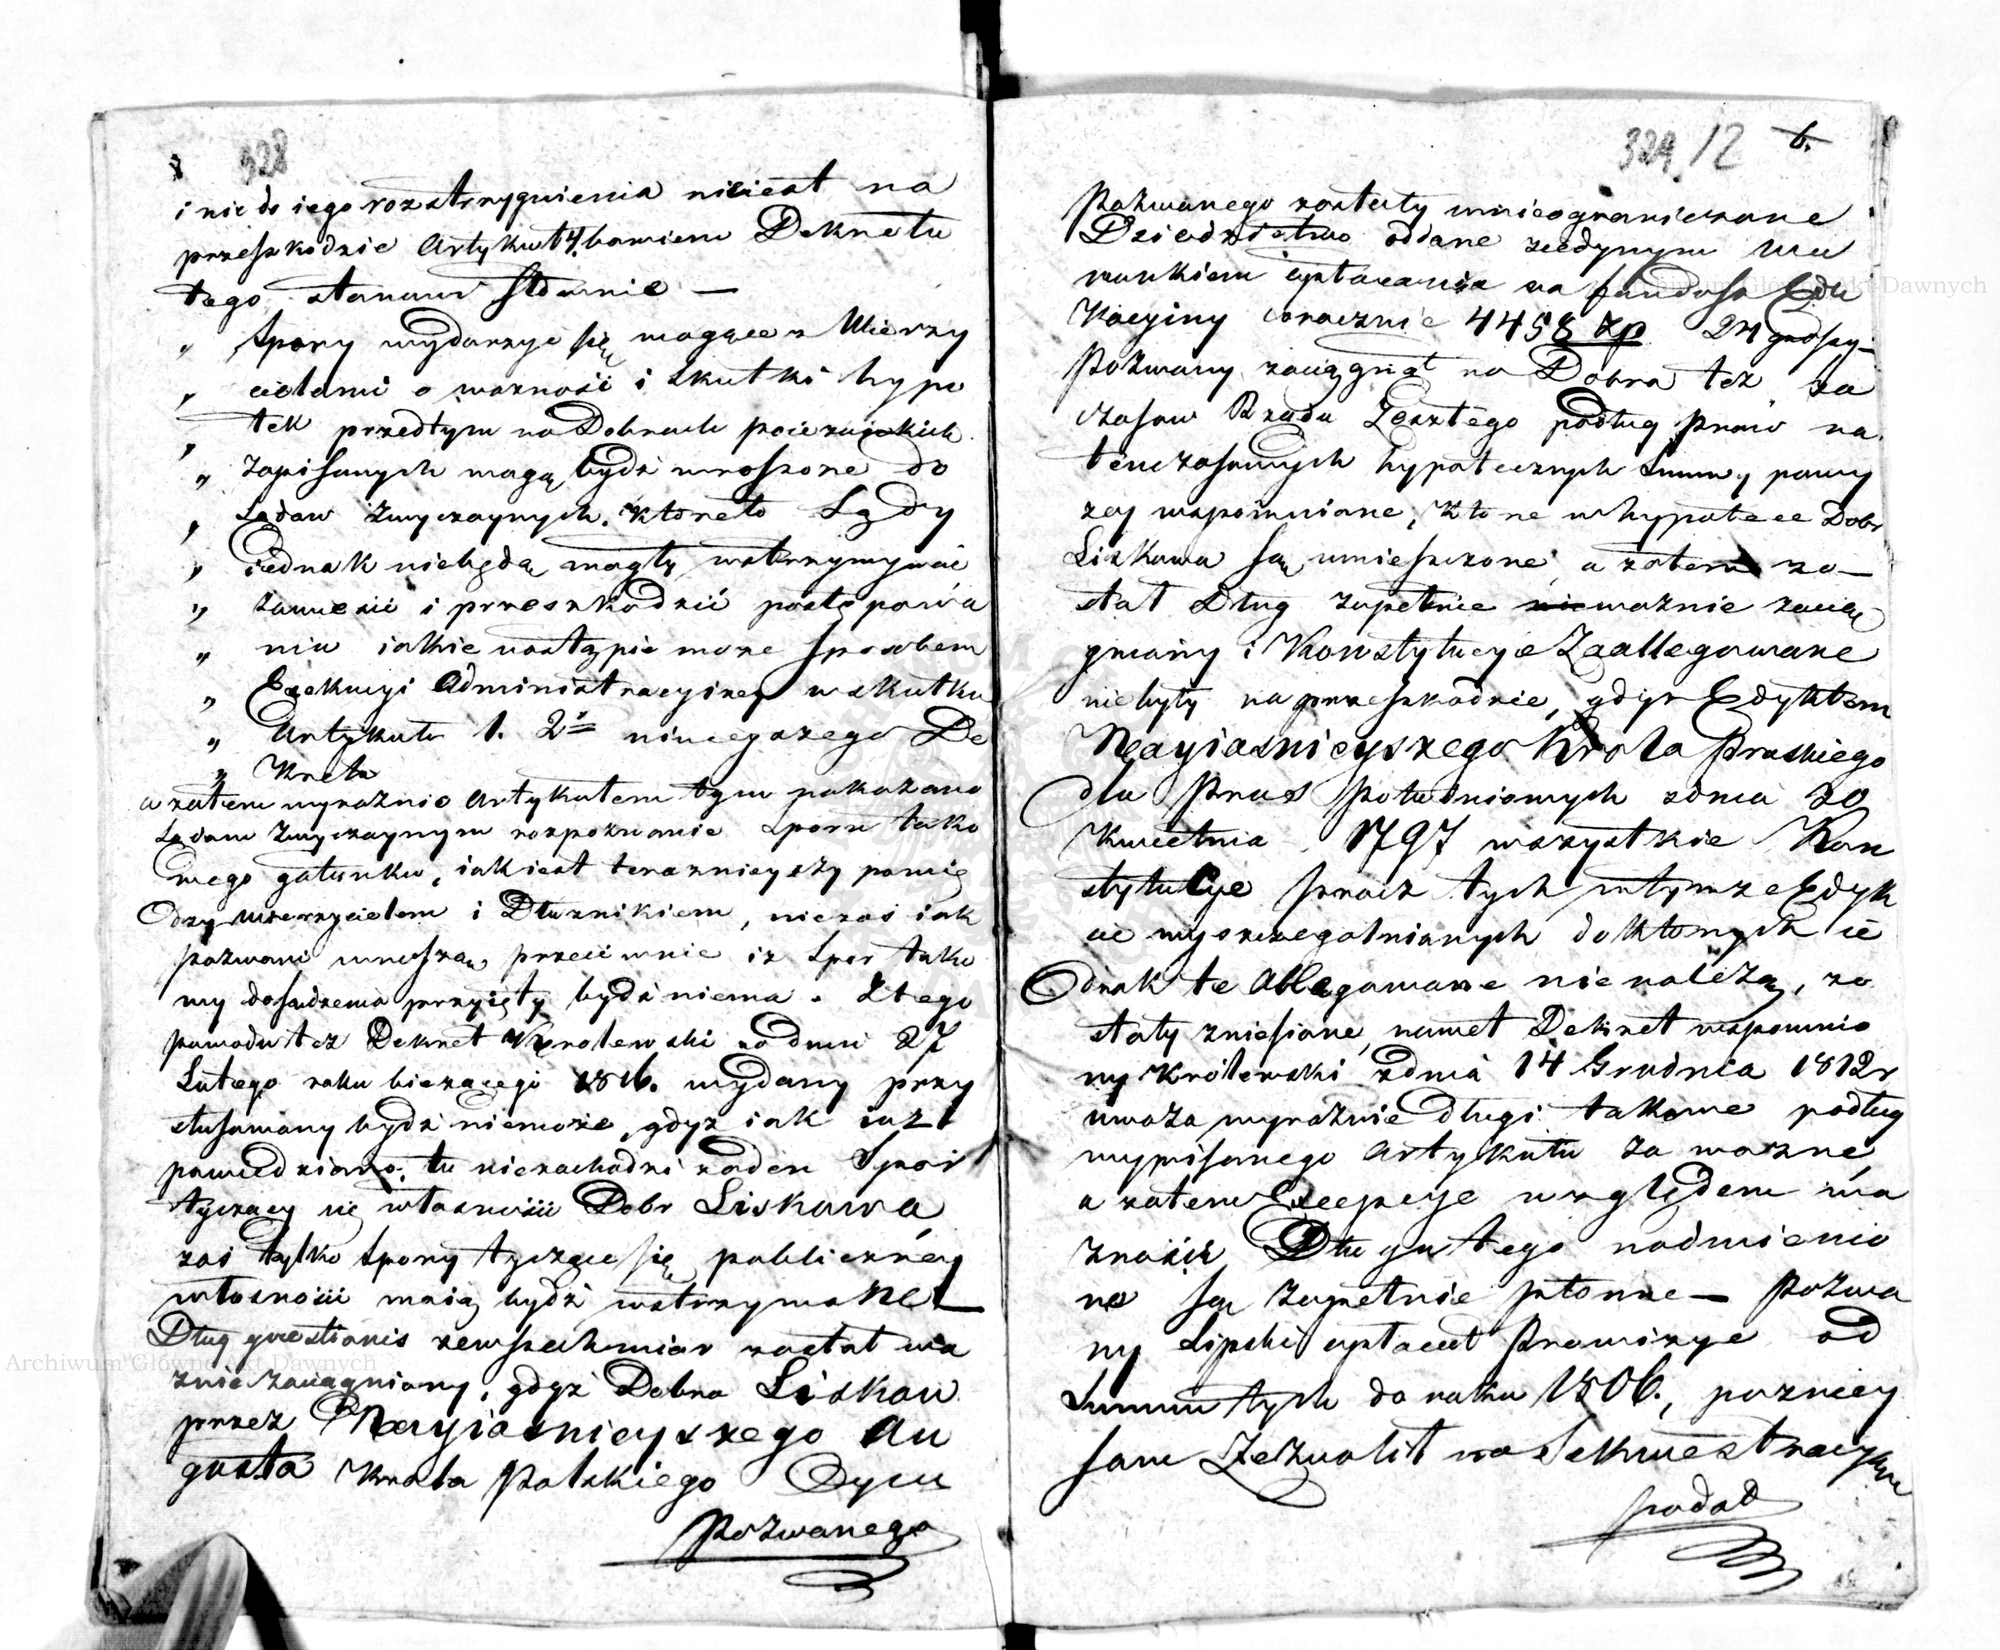 328
i nie do iego rozstrzygnienia nieiest na
przeszkodzie Artykuł 4. bowiem Dekretu
tego stanowi
„ Spory wydarzyć się mogące z Wierzy
„ cielami o ważność i skutki hypo
„ tek przedtym na Dobrach poiezuickich
„ zapisanych mogą bydź wnoszone do
„ Sądow zwyczaynych, ktoreto Sądy
„ iednak niebędą mogły wstrzymywać
„ zawiesić i przeszkodzić postępowa
„ niu iakie nastąpić może sposobem
„ Exekucyi Administracyiney w skutku
„ Artykułu 1. 2º ninieyszego De
„ kretu
a zatem wyraźnie Artykułem tym pokazano
Sądom zwyczaynym rozpoznanie sporu tako
wego gatunku, iakiest teraznieyszy pomię
dzy Wierzycielem i Dłużnikiem, niezaś iak
pozwani wnoszą, przeciwnie iż spor tako
wy dosądzenia przyięty bydź niema. Ztego
powodu też Dekret Krolewski zdnia 27
Lutego roku bieżącego 1816. wydany przy
stosowany bydź niemoże, gdyż iak iuż
powiedziano, tu niezachodzi żaden Spor
tyczący się własności Dobr Liskowa
zaś tylko spory tyczące się publiczney
własności maią bydź wstrzymane.
Dług quaestionis zewszechmiar został wa
żnie zaciągniony, gdyż Dobra Liskow
przez Nayiasnieyszego Au
gusta Krola Polskiego Oycu
Pozwanego
329 12 6.
Pozwanego zostały wnieograniczone
Dziedzictwo oddane zjedynym wa
runkiem opłacania na fundusz Edu
kacyiny corocznie 4458 zp 24 groszy
Pozwany zaciągnął na Dobra też za
czasow Rządu Zeszłego podług praw na
tenczasowych hypotecznych Summy powy
żey wspomnione, ktore w hypotece Dobr
Liskowa są umieszczone, a zatem zo
stał Dług zupełnie ważnie zacią
gniony i Konstytucye Zaallegowane
niebyły na przeszkodzie, gdyż Edyktem
Nayiasnieyszego Krola Pruskiego
dla Prus południowych zdnia 20
Kwietnia 1797 wszystkie Kon
stytucye procz tych wtymże Edyk
cie wyszczegolnionych doktorych ie
dnak te Allegowane nie należą, zo
stały zniesione, nawet Dekret wspomnio
ny Krolewski zdnia 14 Grudnia 1812 r
uważa wyraźnie długi takowe podług
wypisanego Artykułu za ważne,
a zatem Excepcye względem wa
żności Długu tego nadmienio
ne są zupełnie płonne — Pozwa
ny Lipski opłacał Prowizye od
Summ tych do roku 1806., pozniey
sam Zezwolił na Sekwestracyą
podał